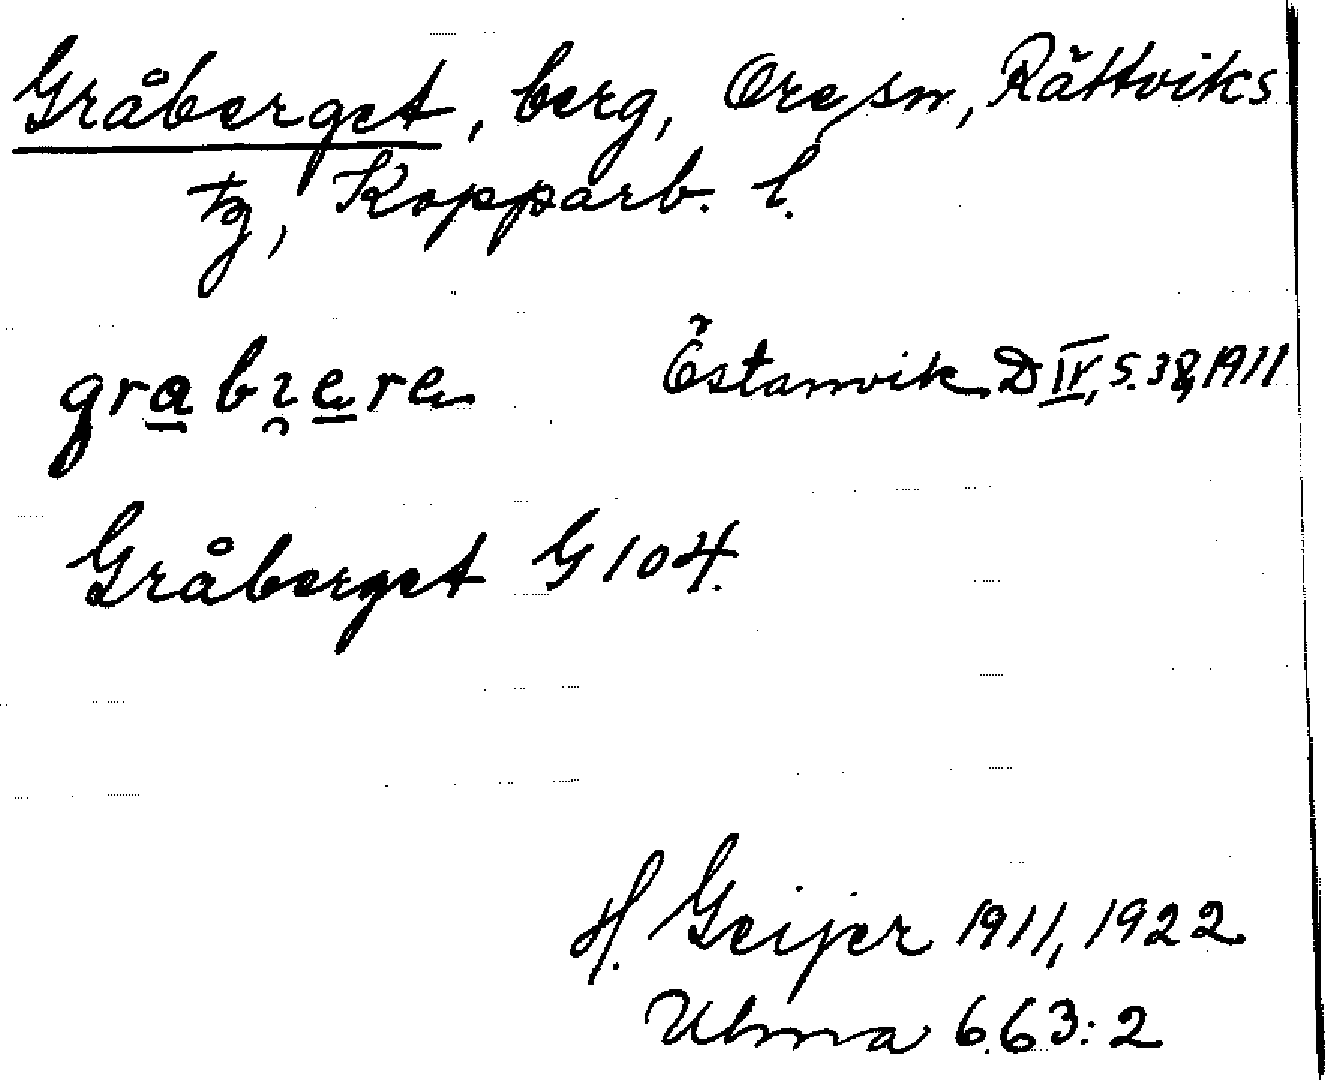 Gråberget, berg, Ore sn, Rättviks
tg, Kopparb. l.
Östanvik D IV, s. 38, 1911
Gråberget G 104.
H. Geijer 1911, 1922
Ulma 663:2